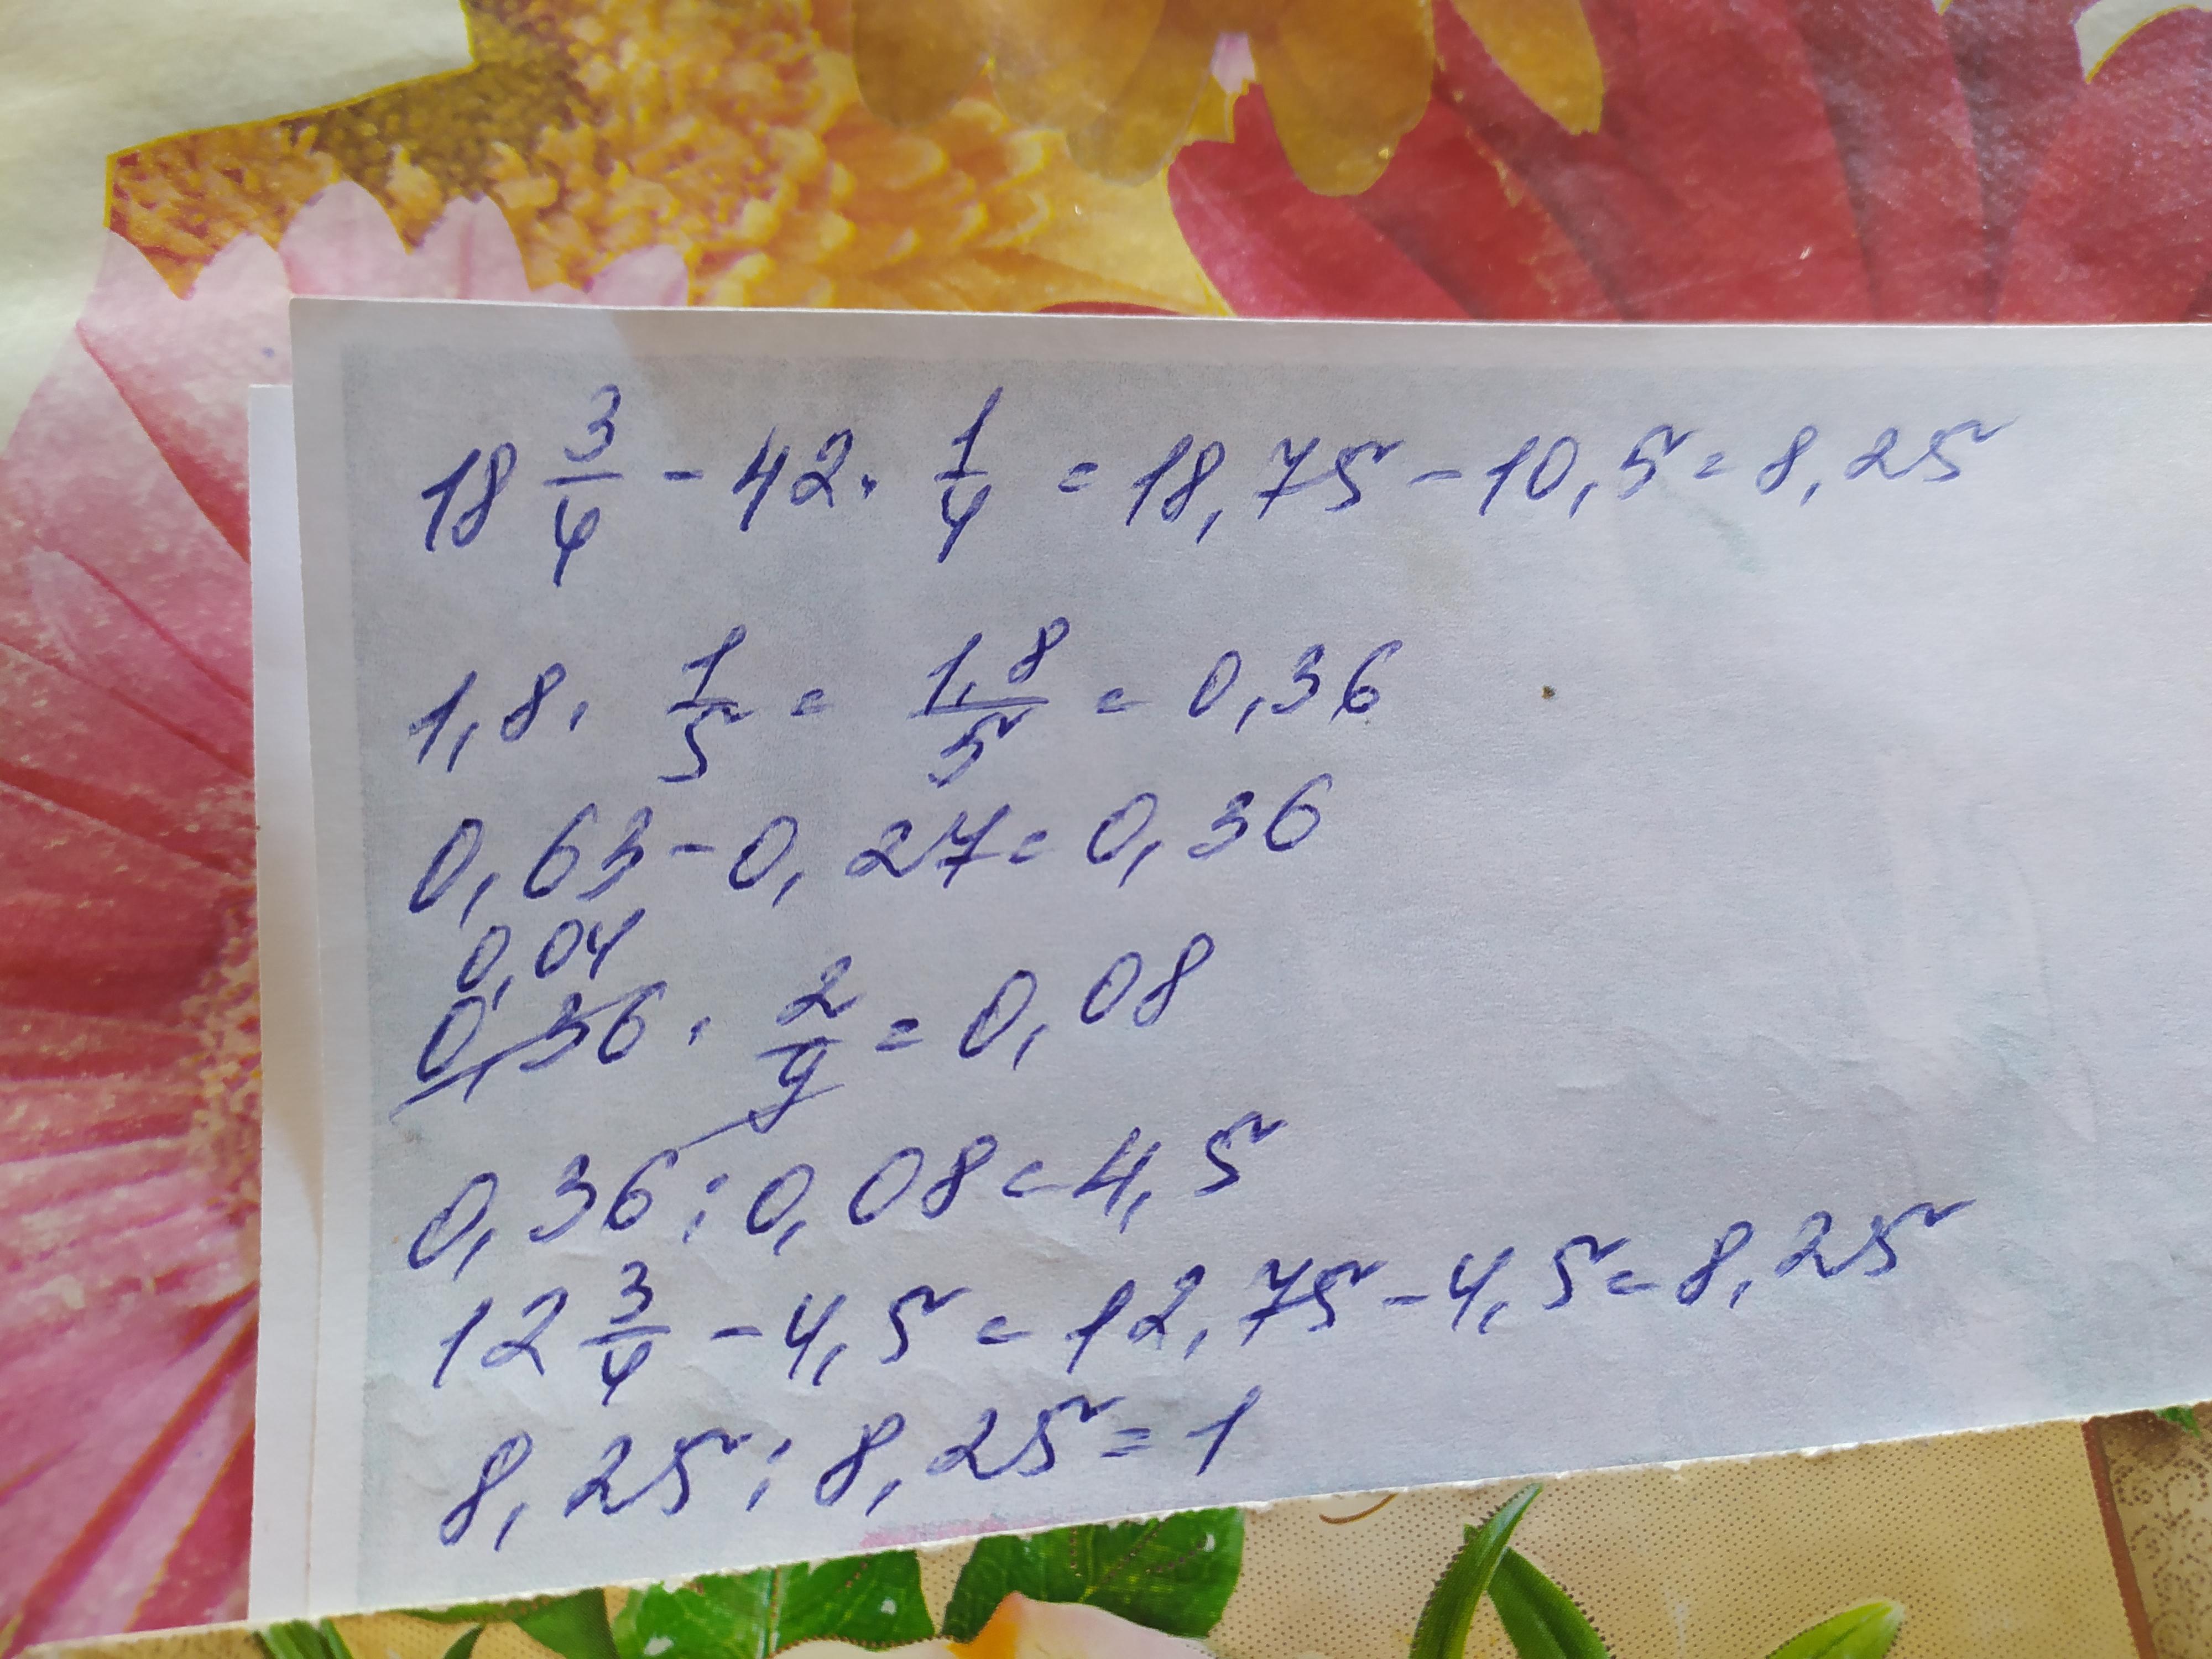 18 3/4 - 42 · 1/4 = 18,75 - 10,5 = 8,25
1,8 · 1/5 = 1,8/5 = 0,36
0,63 - 0,27 = 0,36
0,04
0,36 · 2/9 = 0,08
0,36 : 0,08 = 4,5
12 3/4 - 4,5 = 12,75 - 4,5 = 8,25
8,25 : 8,25 = 1